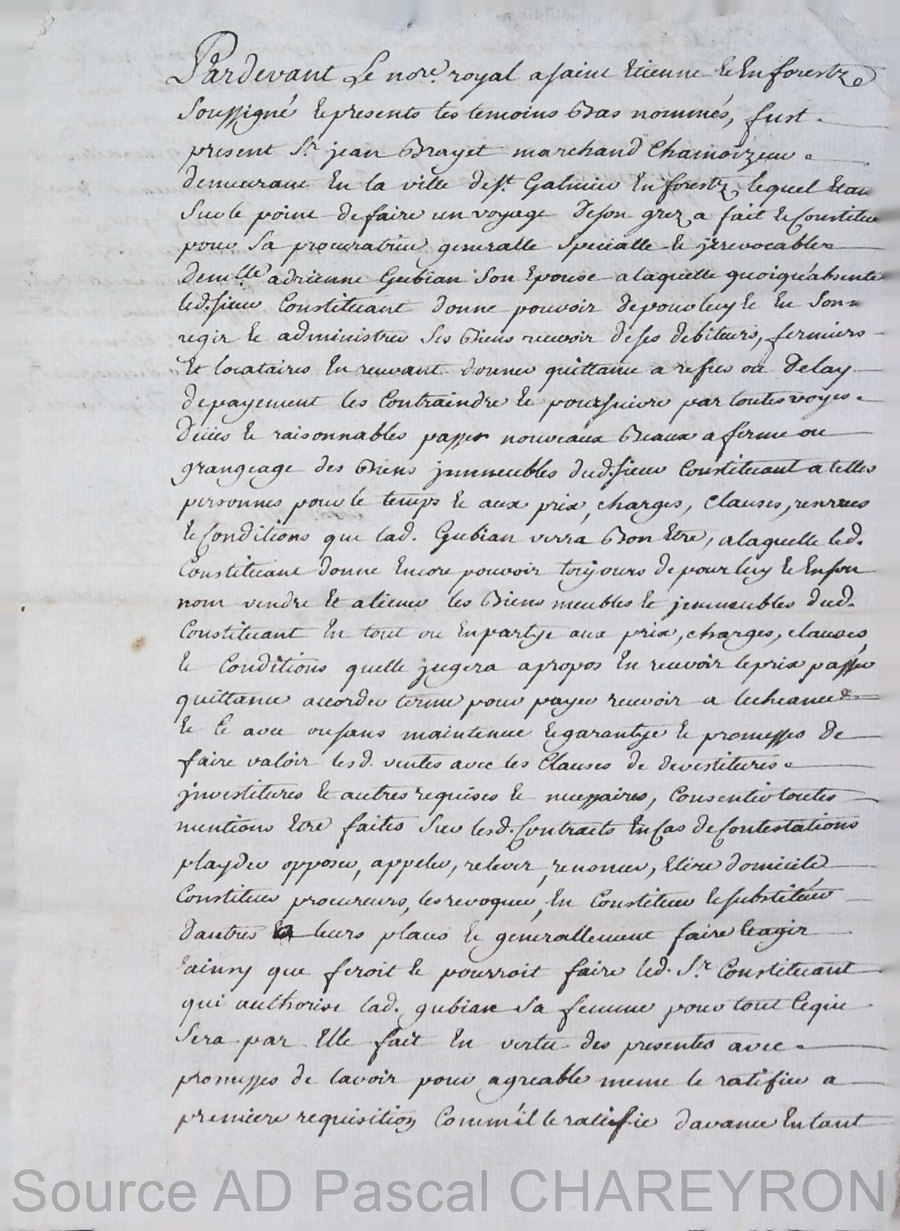 Pardevant Le nore. royal a saint Etienne Le En forestz
soussigné Le presents les temoins Bas nommés, fust
present Sr. jean Brayet marchand Chamoizeur
demeurant En la ville de st. Galmier En forestz lequel Etan
Sur le point de faire un voyage de son grez a fait Le Constitué
pour Sa procuratrice generalle specialle Le jrrevocable
demlle adrienne Gubian Son Epouse a laquelle quoiqu'absente
led. sieur Constituant donne pouvoir de pour luy Le En Son
regir Le administrer Ses Biens recevoir de ses debiteurs, fermiers
Et locataires En recevant donner quittance a refus ou Delay
de payement les Contraindre Le poursuivre par toutes voyes
Deües Le raisonnables passer nouveaux Beaux a ferme ou
grangeage des Biens jmmeubles dud. sieur Constituant a telles
personnes pour le temps Le aux prix, charges, Clauses, reserves
Le Conditions que lad. Gubian verra Bon Etre, a laquelle led.
Constituant donne Encore pouvoir toujours de pour luy Le En son
nom vendre Et aliener les Biens meubles Le jmmeubles dud.
Constituant En tout ou En partye aux prix, charges, clauses
Le Conditions quelle jugera a propos En recevoir le prix passer
quittance accorder terme pour payer recevoir a lecheance
Le Ce avec ou sans maintenue Le garantye Le promesses de
faire valoir lesd. ventes avec les Clauses de devestitures
jnvestitures Et autres requises Le necessaires, Consentir toutes
mentions Etre faites Sur lesd. Contrats En Cas de Contestations
playder opposer, appeller, relever, renoncer, Elire domicile
Constituer procureurs, les revoquer, En Constituer Le substituer
dautres leurs places Le generallement faire Le agir
ainsy que feroit Le pourroit faire led. Sr. Constituant
qui authorise lad. gubian Sa femme pour tout Ceque
Sera par Elle fait En vertu des presentes avec
promesses de lavoir pour agreable meme le ratifier a
premiere requisition Comm'il le ratifie davance En tant
Source AD Pascal CHAREYRON